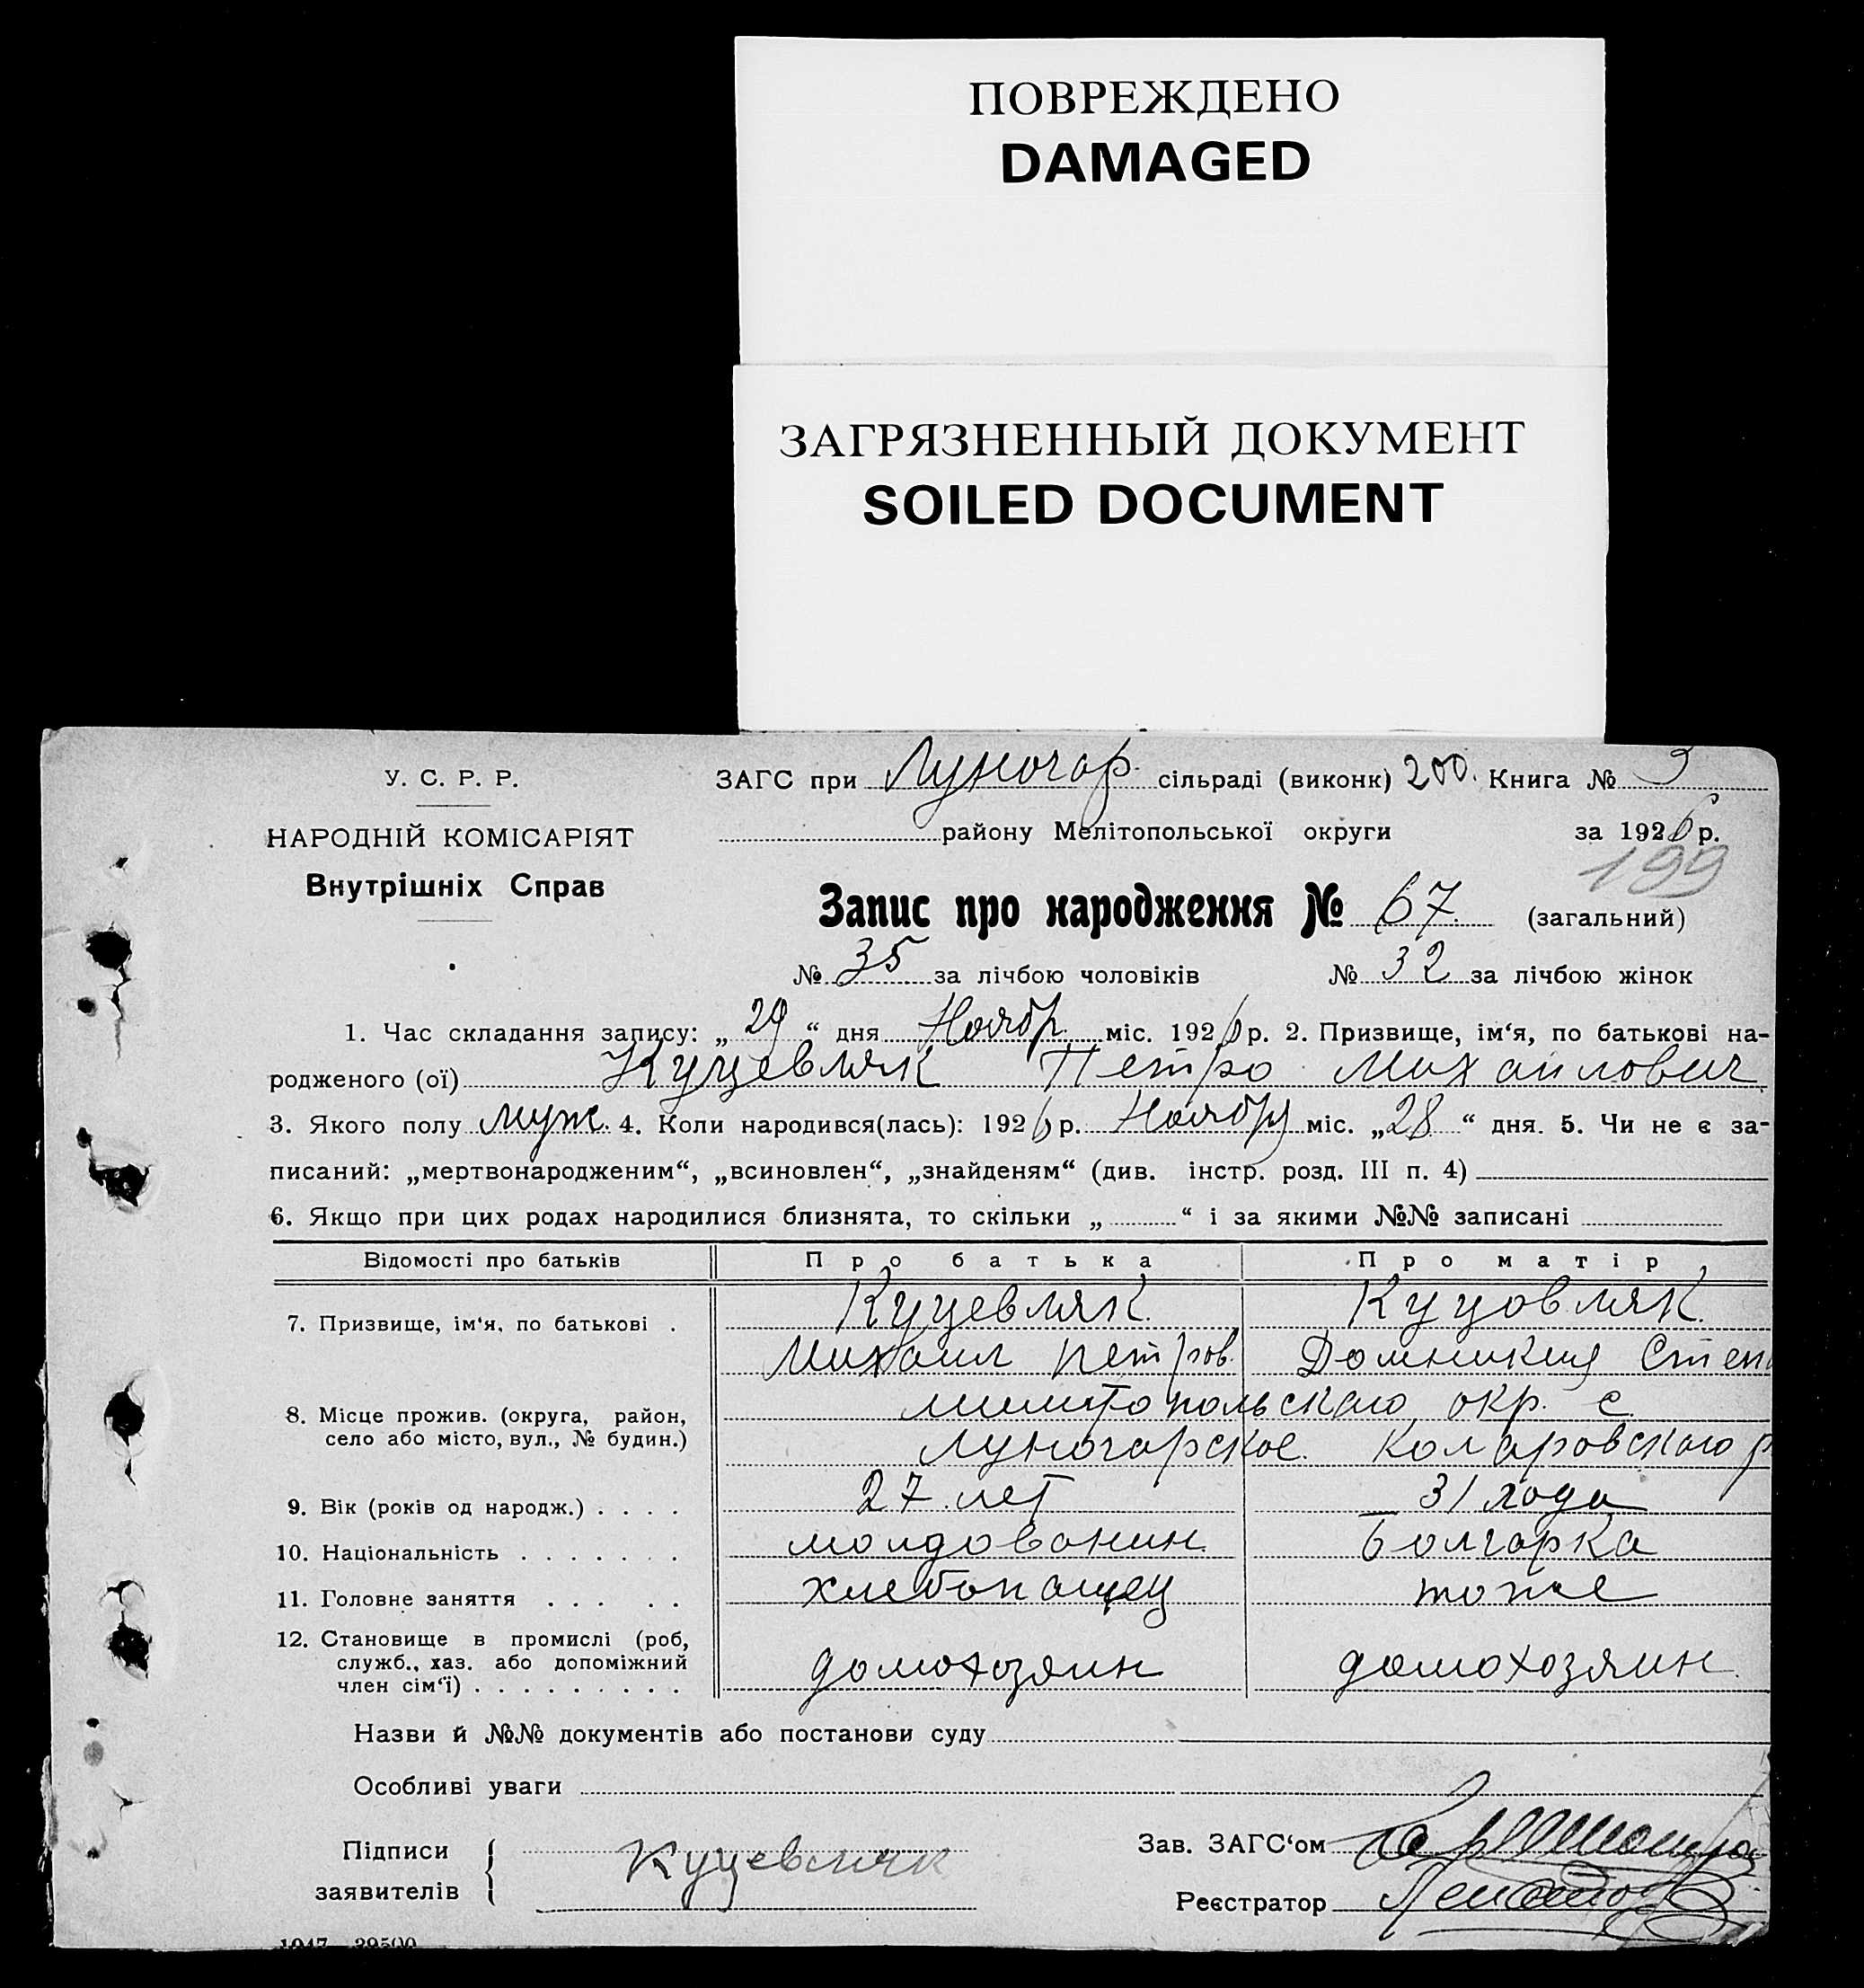 ПОВРЕЖДЕНО
DAMAGED
ЗАГРЯЗНЕННЫЙ ДОКУМЕНТ
SOILED DOCUMENT
У. С. Р. Р.
НАРОДНІЙ КОМІСАРІЯТ
Внутрішніх Справ
ЗАГС при Луночар. сільраді (виконк) 200. Книга № 3
району Мелітопольської округи за 1926 р.
199
Запис про народження № 67. (загальний)
№ 35 за лічбою чоловіків № 32 за лічбою жінок
1. Час складання запису: „ 29 “ дня Ноябр. міс. 1926 р. 2. Призвище, ім‘я, по батькові на-
родженого (ої) Куцевляк Петро Михайлович
3. Якого полу муж. 4. Коли народився(лась): 1926 р. Ноябру міс. „28 “ дня. 5. Чи не є за-
писаний: „мертвонародженим“, „всиновлен“, „знайденям“ (див. інстр. розд. III п. 4)
6. Якщо при цих родах народилися близнята, то скільки „ “ і за якими №№ записані
Відомості про батьків Про батька Про матір
7. Призвище, ім‘я, по батькові . Куцевляк. Куцовляк.
Михаил Петров. Домникия Степ
8. Місце прожив. (округа, район, село або місто, вул., № будин.) милитопольскаго окр. с.
Луночарское. Коларовскаго р
9. Вік (років од народж.) . . . . 27 лет 31 года
10. Національність . . . . . . . молдованин. болгарка
11. Головне заняття . . . . . хлебопащец тоже
12. Становище в промислі (роб, служб., хаз. або допоміжний член сім‘ї) . . . . . . . . . домохозяин домохозяин.
Назви й №№ документів або постанови суду
Особливі уваги
Підписи заявителів { Куцевляк
Зав. ЗАГС‘ом
Реєстратор
1047—39500